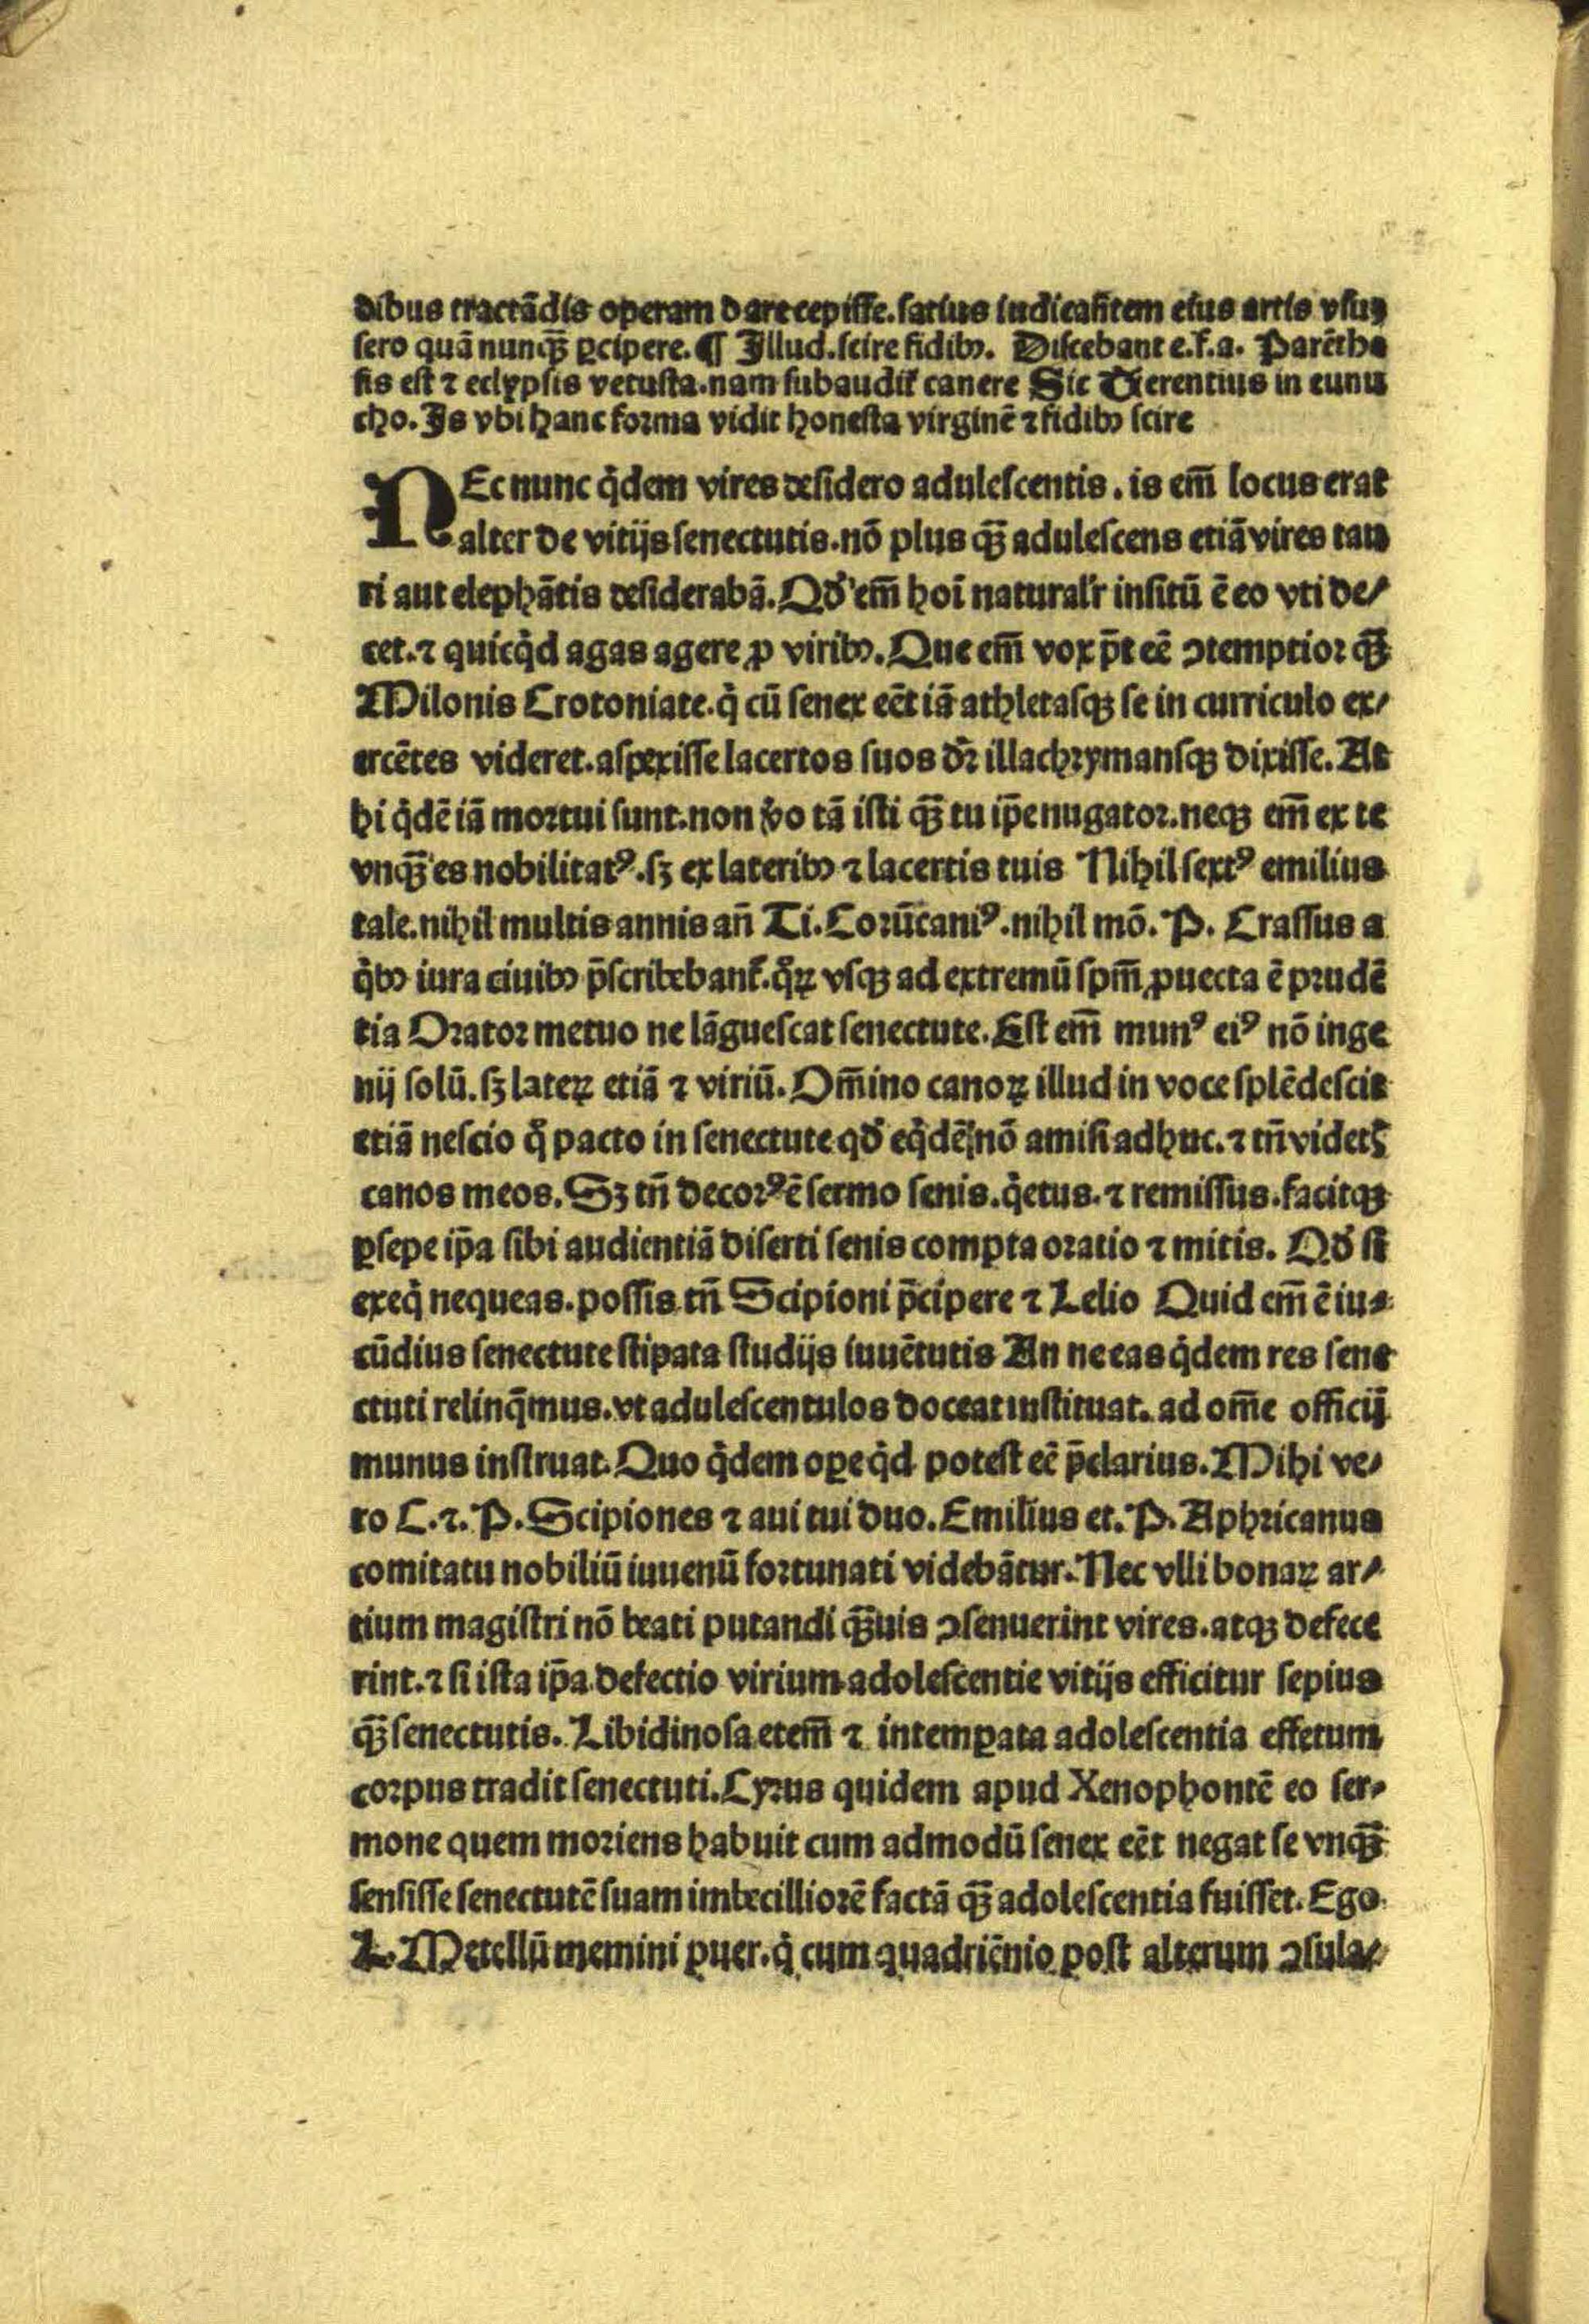 dibus tractādis operam dare cepisse. satius iudicantem eius artis vsuȝ
sero quā nunqꝫ̄ ꝑcipere. ¶ Illud. scire fidibꝰ. Discebant e. f. a. Parēthe
sis est ⁊ eclypsis vetusta. nam subaudit̄ canere Sic Terentius in eunu
cho. Is vbi hanc forma vidit honesta virginē ⁊ fidibꝰ scire
NEc nunc q̇dem vires desidero adulescentis. is em̄ locus erat
alter de vitijs senectutis. nō plus qꝫ̄ adulescens etiā vires tau
ri aut elephātis desiderabā. Qd̓ em̄ hoī naturalr̓ insitū ē eo vti de⸗
cet. ⁊ quicq̇d agas agere ꝓ viribꝰ. Que em̄ vox p̄t eē ꝯtemptior qꝫ̄
Milonis Crotoniate. q̇ cū senex eēt iā athletasqꝫ se in curriculo ex⸗
ercētes videret. aspexisse lacertos suos dr̄ illachrymansqꝫ dixisse. At
hi q̇dē iā mortui sunt. non v̓o tā isti qꝫ̄ tu ip̄e nugator. neqꝫ em̄ ex te
vnqꝫ̄ es nobilitatꝰ. sꝫ ex lateribꝰ ⁊ lacertis tuis Nihil sextꝰ emilius
tale. nihil multis annis an̄ Ti. Corūcaniꝰ. nihil mō. P. Crassus a
q̇bꝰ iura ciuibꝰ p̄scribebant̄. qͦꝝ vsqꝫ ad extremū spm̄ ꝓuecta ē prudē
tia Orator metuo ne lāguescat senectute. Est em̄ munꝰ eiꝰ nō inge
nij solū. sꝫ lateꝝ etiā ⁊ viriū. Om̄ino canoꝝ illud in voce splēdescit
etiā nescio qͦ pacto in senectute qd̓ eq̇dē nō amisi adhuc. ⁊ tn̄ videtꝭ
canos meos. Sꝫ tn̄ decorꝰ ē sermo senis. q̇etus. ⁊ remissus. facitqꝫ
ꝑsepe ip̄a sibi audientiā diserti senis compta oratio ⁊ mitis. Qd̓ si
exeq̇ nequeas. possis tn̄ Scipioni p̄cipere ⁊ Lelio Quid em̄ ē iu⸗
cūdius senectute stipata studijs iuuētutis An ne eas q̇dem res sene
ctuti relinq̄mus. vt adulescentulos doceat instituat. ad om̄e officij
munus instruat. Quo q̇dem oꝑe q̇d potest eē p̄clarius. Mihi ve⸗
ro C. ⁊. P. Scipiones ⁊ aui tui duo. Emilius et. P. Aphricanus
comitatu nobiliū iuuenū fortunati videbātur. Nec vlli bonaꝝ ar⸗
tium magistri nō beati putandi qꝫ̄uis ꝯsenuerint vires. atqꝫ defece
rint. ⁊ si ista ip̄a defectio virium adolescentie vitijs efficitur sepius
qꝫ̄ senectutis. Libidinosa etem̄ ⁊ intemꝑata adolescentia effetum
corpus tradit senectuti. Cyrus quidem apud Xenophontē eo ser⸗
mone quem moriens habuit cum admodū senex eēt negat se vnqꝫ̄
sensisse senectutē suam imbecilliorē factā qꝫ̄ adolescentia fuisset. Ego
L. Metellū memini puer. q̇ cum quadriēnio post alterum ꝯsula⸗